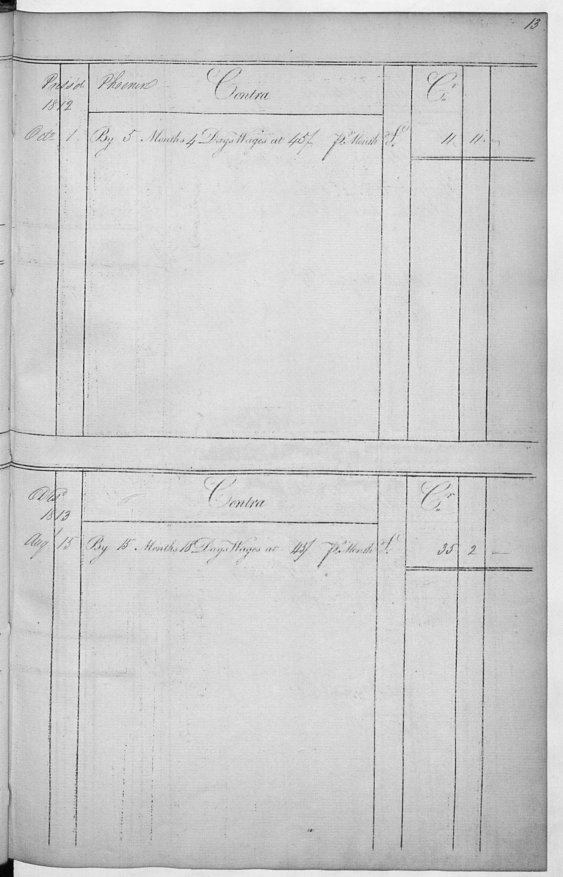 13
Phoenix Contra Cr
1812
Octr 1 By 5 Months 4 Days Wages at 45/ pr Month £ 4 4 –
Contra Cr
1813
Augt 15 By 15 Months 15 Days Wages at 45/ pr Month £ 35 2 –